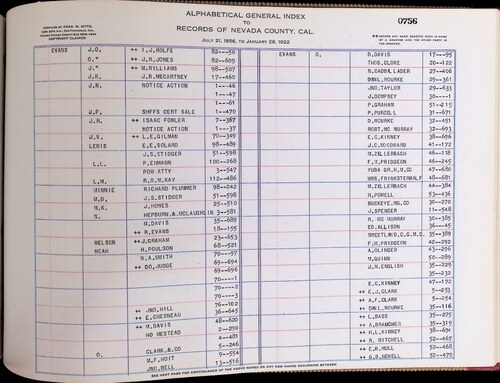 ALPHABETICAL GENERAL INDEX
TO
RECORDS OF NEVADA COUNTY, CAL.
JULY 21, 1856, TO JANUARY 26, 1922
0756
COPYRIGHT CLAIMED
EVANS J.O. ++ I.J.ROLFE 82---50
O.* ++ J.R.JONES 82--609
J.* ++ M.WILLIAMS 98--507
J.K. J.B.MCCARTNEY 17--460
J.N. NOTICE ACTION 1---46
1---47
1---61
J.P. SHFFS CERT SALE 1--470
J.R. ++ ISAAC FOWLER 7--367
NOTICE ACTION 1---37
J.V. ++ L.E.GILMAN 70--349
LEWIS E.E.SOLARD 98--489
J.S.STIDGER 51--598
P.EHMANN 100--268
L.L. POW ATTY 3--547
L.M. R.O.M.KAY 112--486
MINNIE RICHARD PLUMMER 98--242
M.D. J.S.STIDGER 51--598
M.K. J.HONES 25--510
N. HEPBURN,& MCLAUGHLIN 3--581
M.DAVIS 35--689
++ R.EVANS 18--155
NELSON ++ J.GRAHAM 23--653
NOAH H.POULSON 68--521
N.A.SMITH 70---97
++ OD,JUDGE 69--694
69--696
70----1
70----2
70----3
++ JNO.HILL 76--102
++ E.CHESNEAU 36--645
++ M.DAVIS 48--620
HO MESTEAD 2--290
4--481
5--246
O. CLARK,& CO 9--554
M.F.HOIT 13--516
JNO.BELL
EVANS O. D.DAVIS 17---95
THOS.CLOKE 20--122
N.CADWALADER 27--406
DANL.ROURKE 29--361
JNO.TAYLOR 29--633
J.DEMPSEY 30----1
P.GRAHAM 51--215
P.PURCELL 31--671
D.ROURKE 32--451
ROBT.MC MURRAY 32--693
E.C.KINNEY 38--696
J.C.MCDONARD 41--172
M.ZILERBACH 46--118
F.W.PRIDGEON 46--245
YUBA GR.H.M.CO 47--680
48--681
M.ZELLERBACH 44--384
H.POWELL 53--436
BUCKEYE,MG,CO 30--270
J.SPENGER 11--548
R.MC MURRAY 30--385
ED.ALLISON 36---45
SWEETLND,C,G,M,C 35--389
F.W.PRIDGEON 42--292
A.OLINGER 43--296
M.QUINN 50--289
J.M.ENGLISH 35--229
35--232
E.C.KINNEY 47--172
++ E.J.CLARK 5--253
++ A.F.CLARK 5--254
++ OWL.ROURKE 35--116
++ L.BASS 35--275
++ S.BRAUCHER 35--319
++ H.L.KINNEY 38--694
++ R.MITCHELL 52--467
++ E.B.HULL 52--468
++ G.D.NEWELL 52--470
SEE NEXT PAGE FOR CONTINUANCE OF THE ABOVE NAMES OR ANY NEW NAMES RECORDING BETWEEN